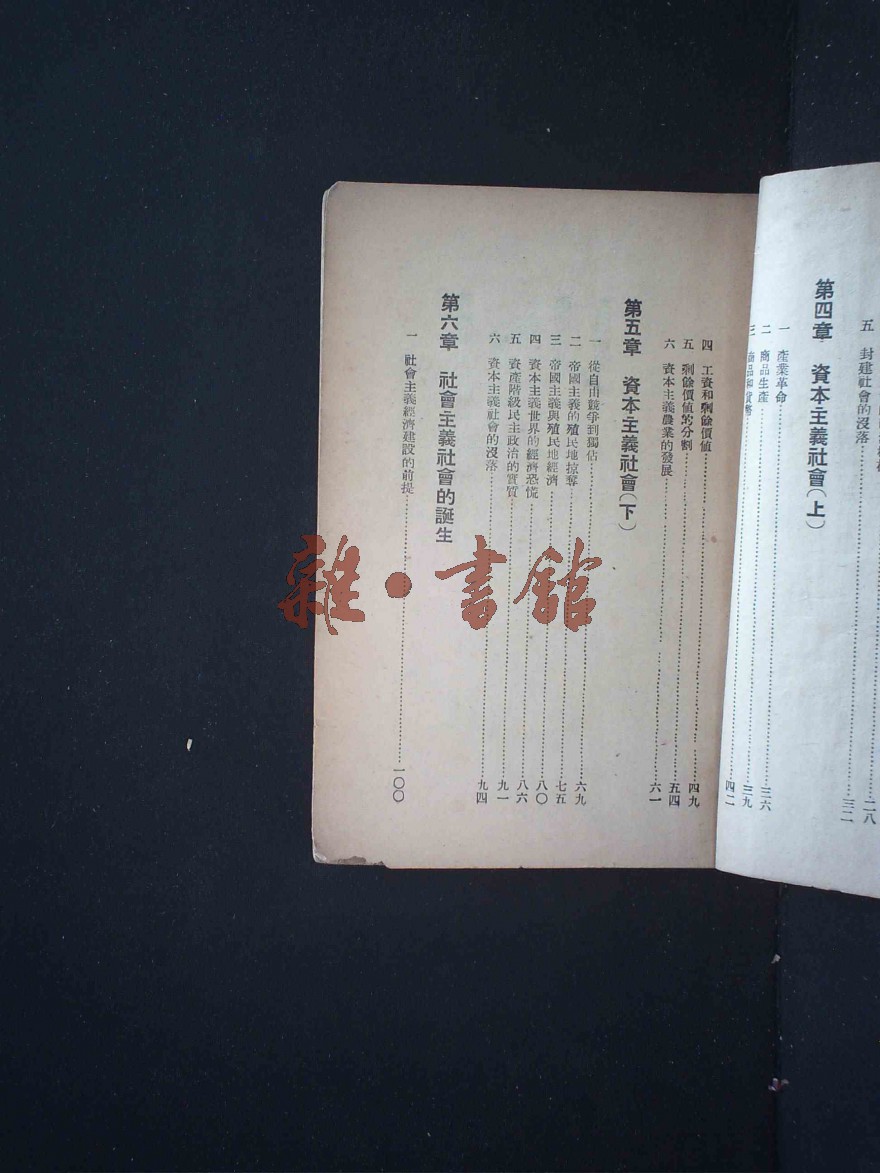 五　封建社會的沒落……三二
第四章　資本主義社會（上）
一　產業革命……三六
二　商品生產……三九
三　商品和貨幣……四二
四　工資和剩餘價值……四九
五　剩餘價值的分割……五四
六　資本主義農業的發展……六一
第五章　資本主義社會（下）
一　從自由競爭到獨佔……六九
二　帝國主義的殖民地掠奪……七五
三　帝國主義與殖民地經濟……八〇
四　資本主義世界的經濟恐慌……八六
五　資產階級民主政治的實質……九一
六　資本主義社會的沒落……九四
第六章　社會主義社會的誕生
一　社會主義經濟建設的前提……一〇〇
雜·書館